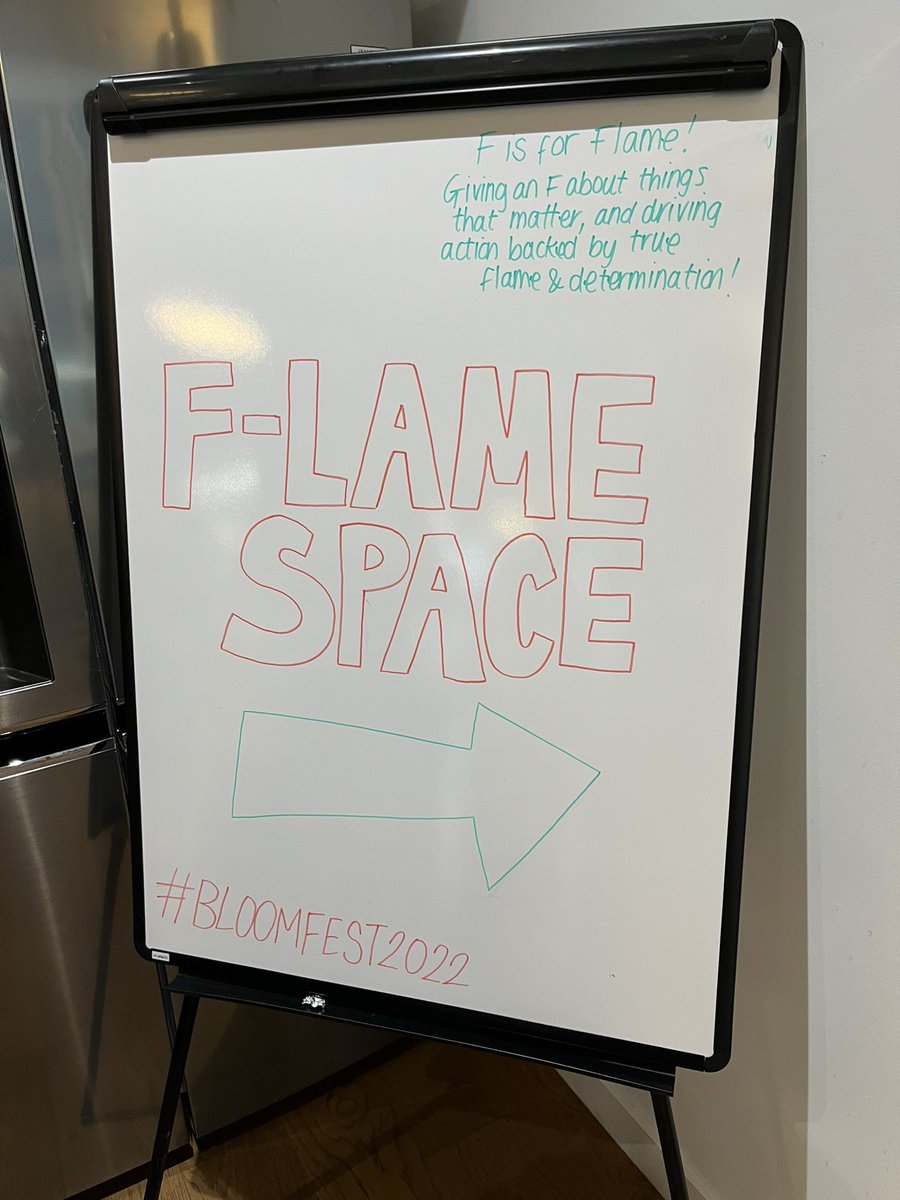 F is for Flame!
Giving an F about things
that matter, and driving
action backed by true
flame & determination!
F-LAME
SPACE
#BLOOMFEST2022